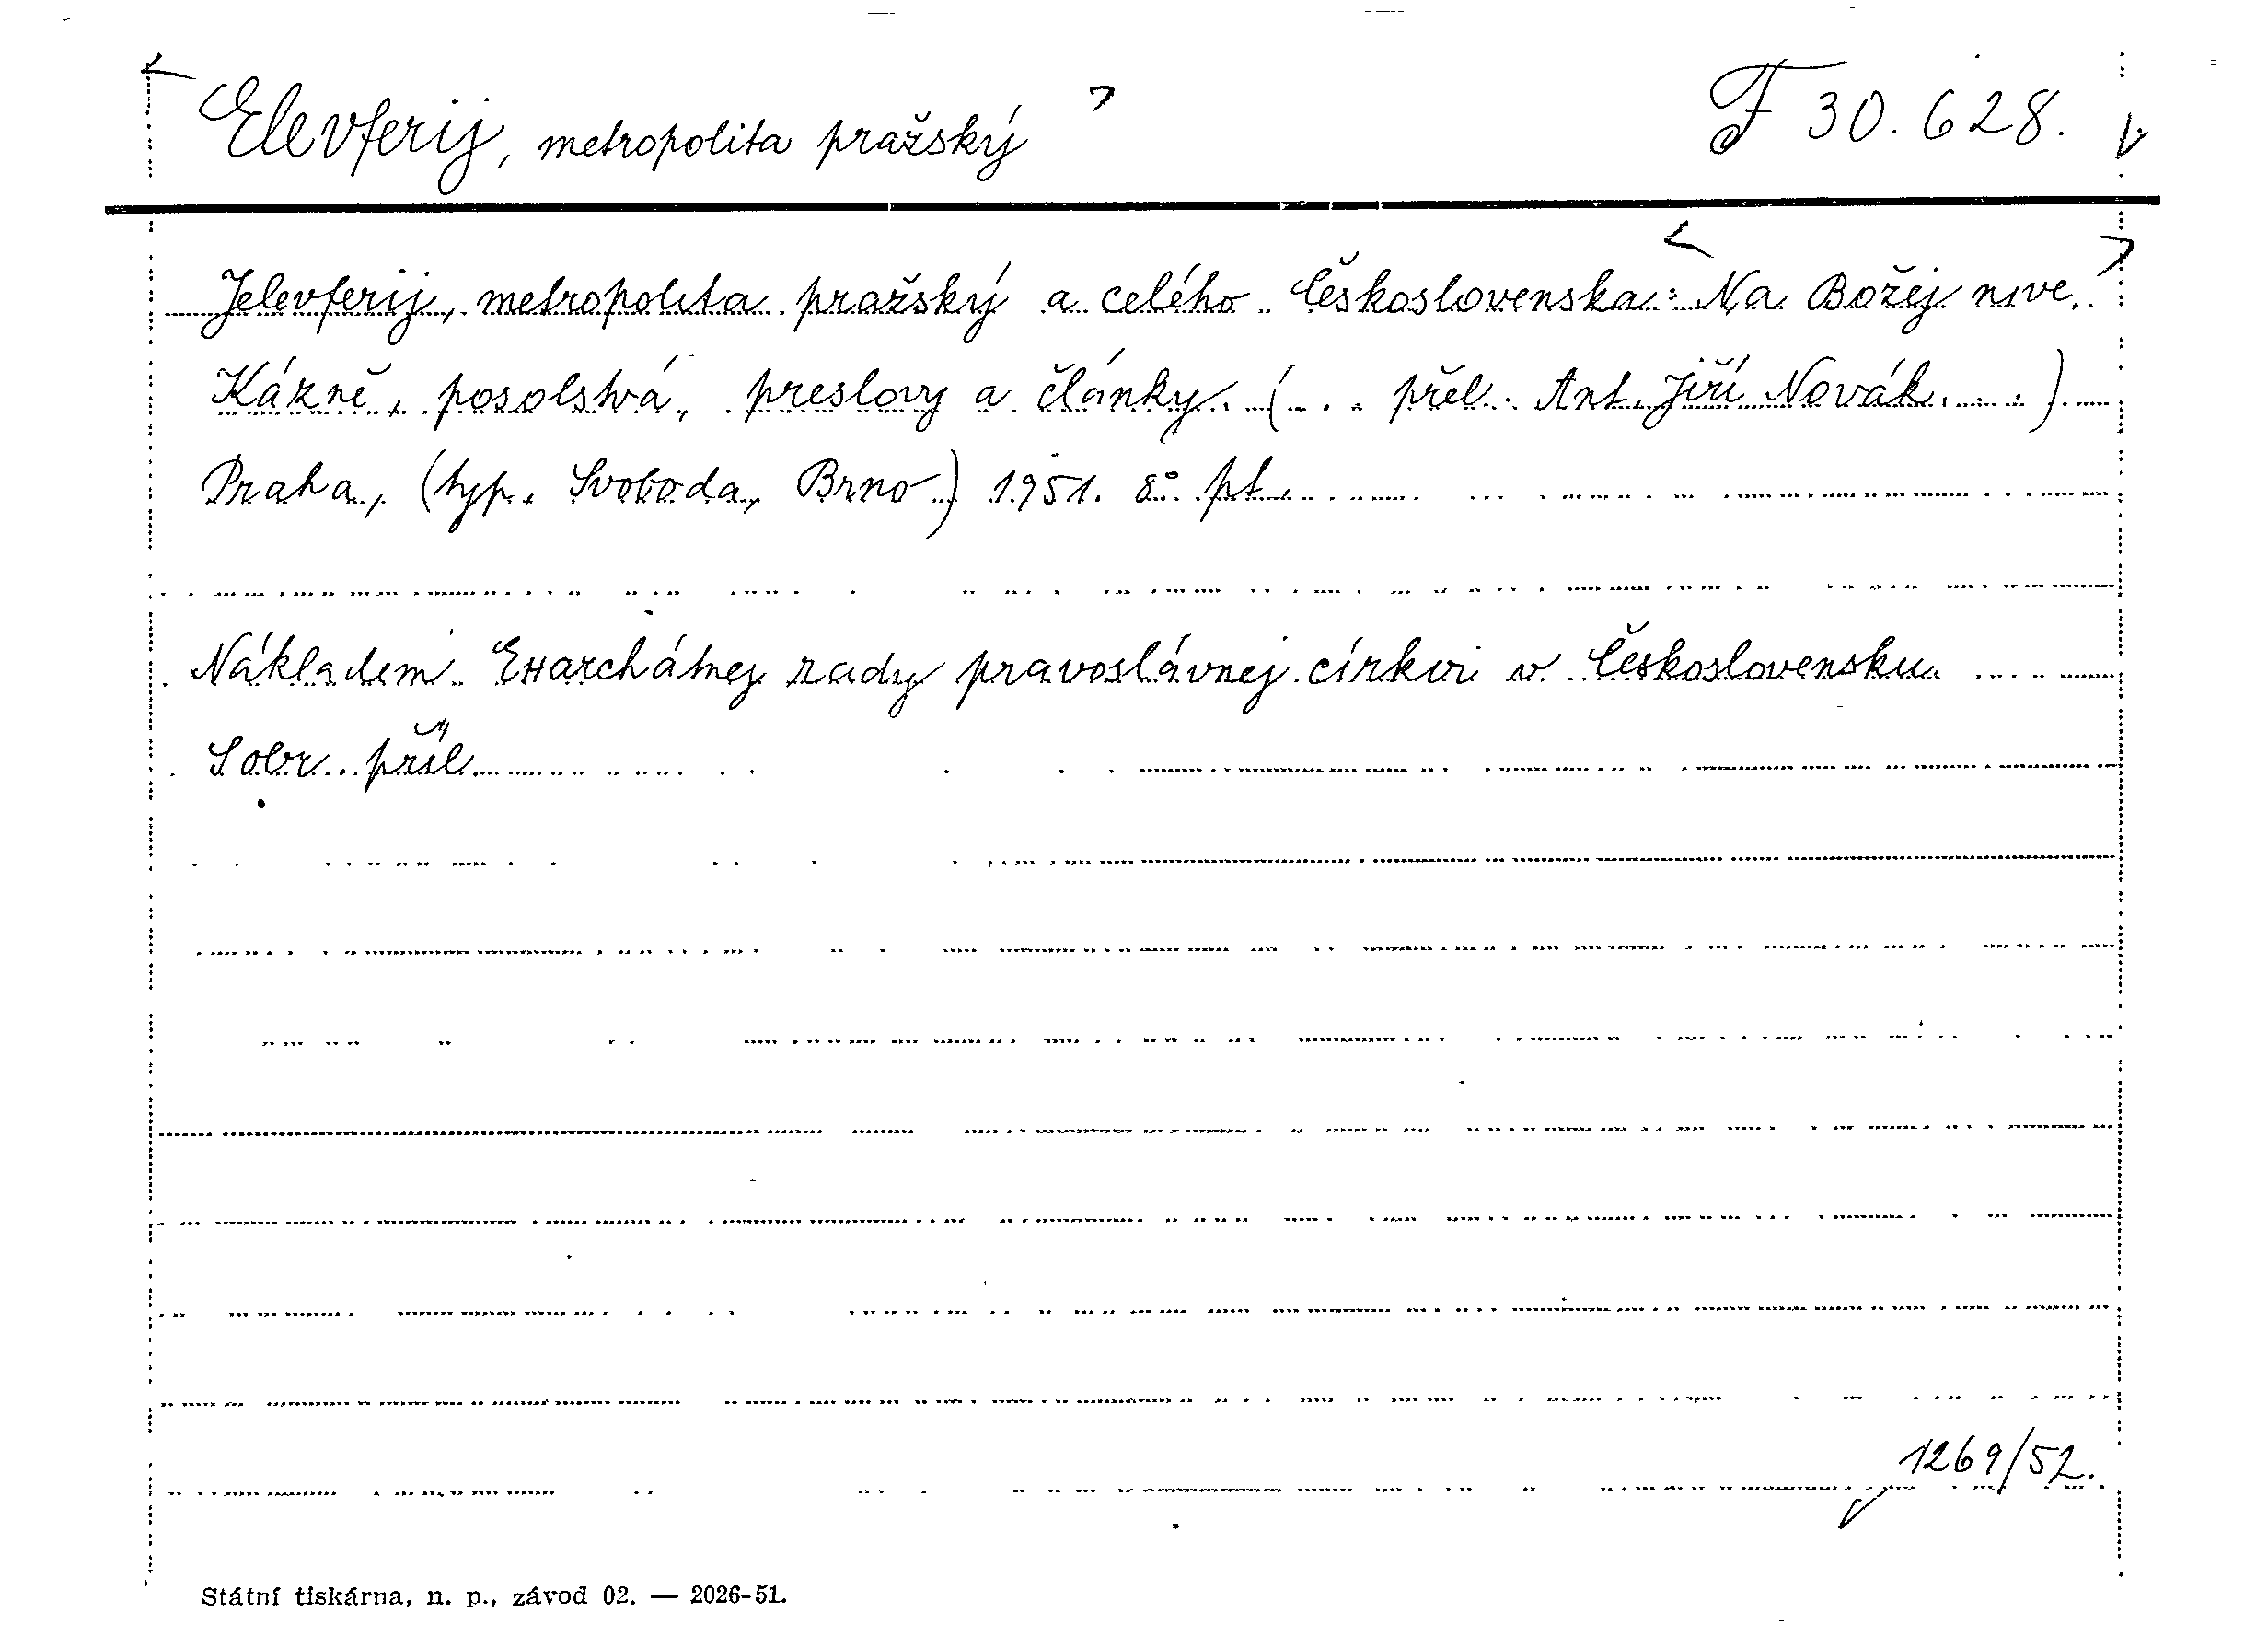 Elevferij, metropolita pražský
F 30.628.
Jelevferij, metropolita pražský a celého Československa: Na Božej nive.
Kázně, posolstvá, preslovy a články. (... přel. Ant. Jiří Novák. ...)
Praha, (typ. Svoboda, Brno) 1951. 8° pt.
Nákladem Exarchátnej rady pravoslávnej církvi v Československu.
S obr. příl.
1269/52.
Státní tiskárna, n. p., závod 02. — 2026-51.